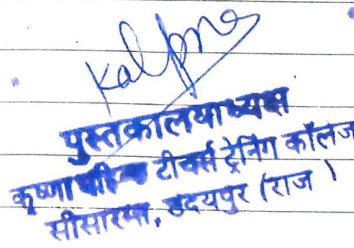 Kalpna
पुस्तकालयाध्यक्ष
कृष्णा महिला टीचर्स ट्रेनिंग कॉलेज
सीसारमा, उदयपुर (राज )